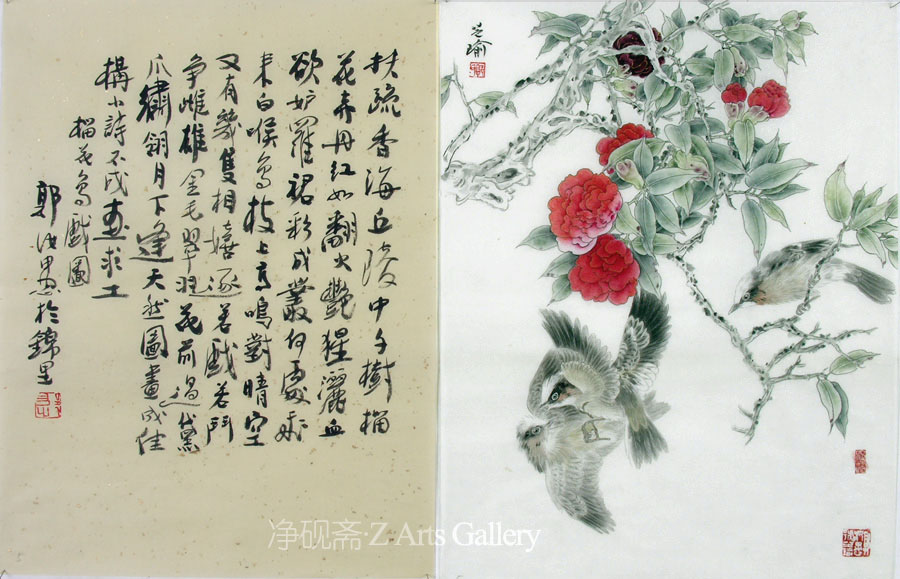 扶疏香海丘陵中千樹榴
花弄丹紅如翻火艷猩灑血
欲妒羅裙彩成叢何處飛
来白喉鳥枝上高鳴對晴空
又有幾隻相嬉逐若戲若鬥
争雌雄金毛翠羽花前過黛
爪繡翎月下逢天然圖畫成佳
構小詩不成畫求工
榴花鳥戲圖
郭汝愚於錦里
芝瑜
净砚斋·Z Arts Gallery